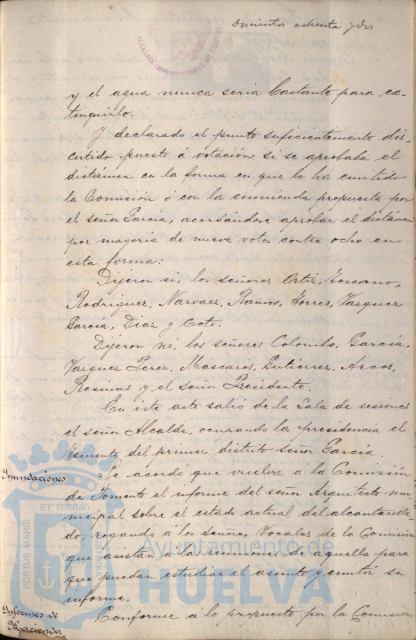 Doscientos ochenta y dos
y el agua nunca seria bastante para es-
tinguirlo.
Y declarado el punto suficientemente dis-
cutido puesto á votación si se aprobaba el
dictámen en la forma en que lo ha emitido
la Comisión ó con la enmienda propuesta por
el señor García, acordándose aprobar el dictámen
por mayoría de nueve votos contra ocho en
esta forma:
Dijeron si, los señores Ortiz, Toscano,
Rodriguez, Narvaez, Ramos, Torres, Vazquez
García, Diaz y Coto.
Dijeron no, los señores Colombo, García,
Vazquez Perez, Mascarós, Gutierrez, Arcos,
Rosinas y el Señor Presidente.
En este acto salió de la Sala de sesiones
el señor Alcalde, ocupando la presidencia el
teniente del primer distrito señor García.
Inundaciones
Se acordó que vuelva á la Comisión
de Fomento el informe del señor Arquitecto mu-
nicipal sobre el estado actual del alcantarilla
do, rogando á los señores Vocales de la Comisión
que asistan á las reuniones de aquella para
que puedan estudiar el asunto y emitir su
informe.
Informes de
Hacienda
Conforme á lo propuesto por la Comision
PORTUS MARIS
ET TERRÆ
Ayuntamiento de
HUELVA